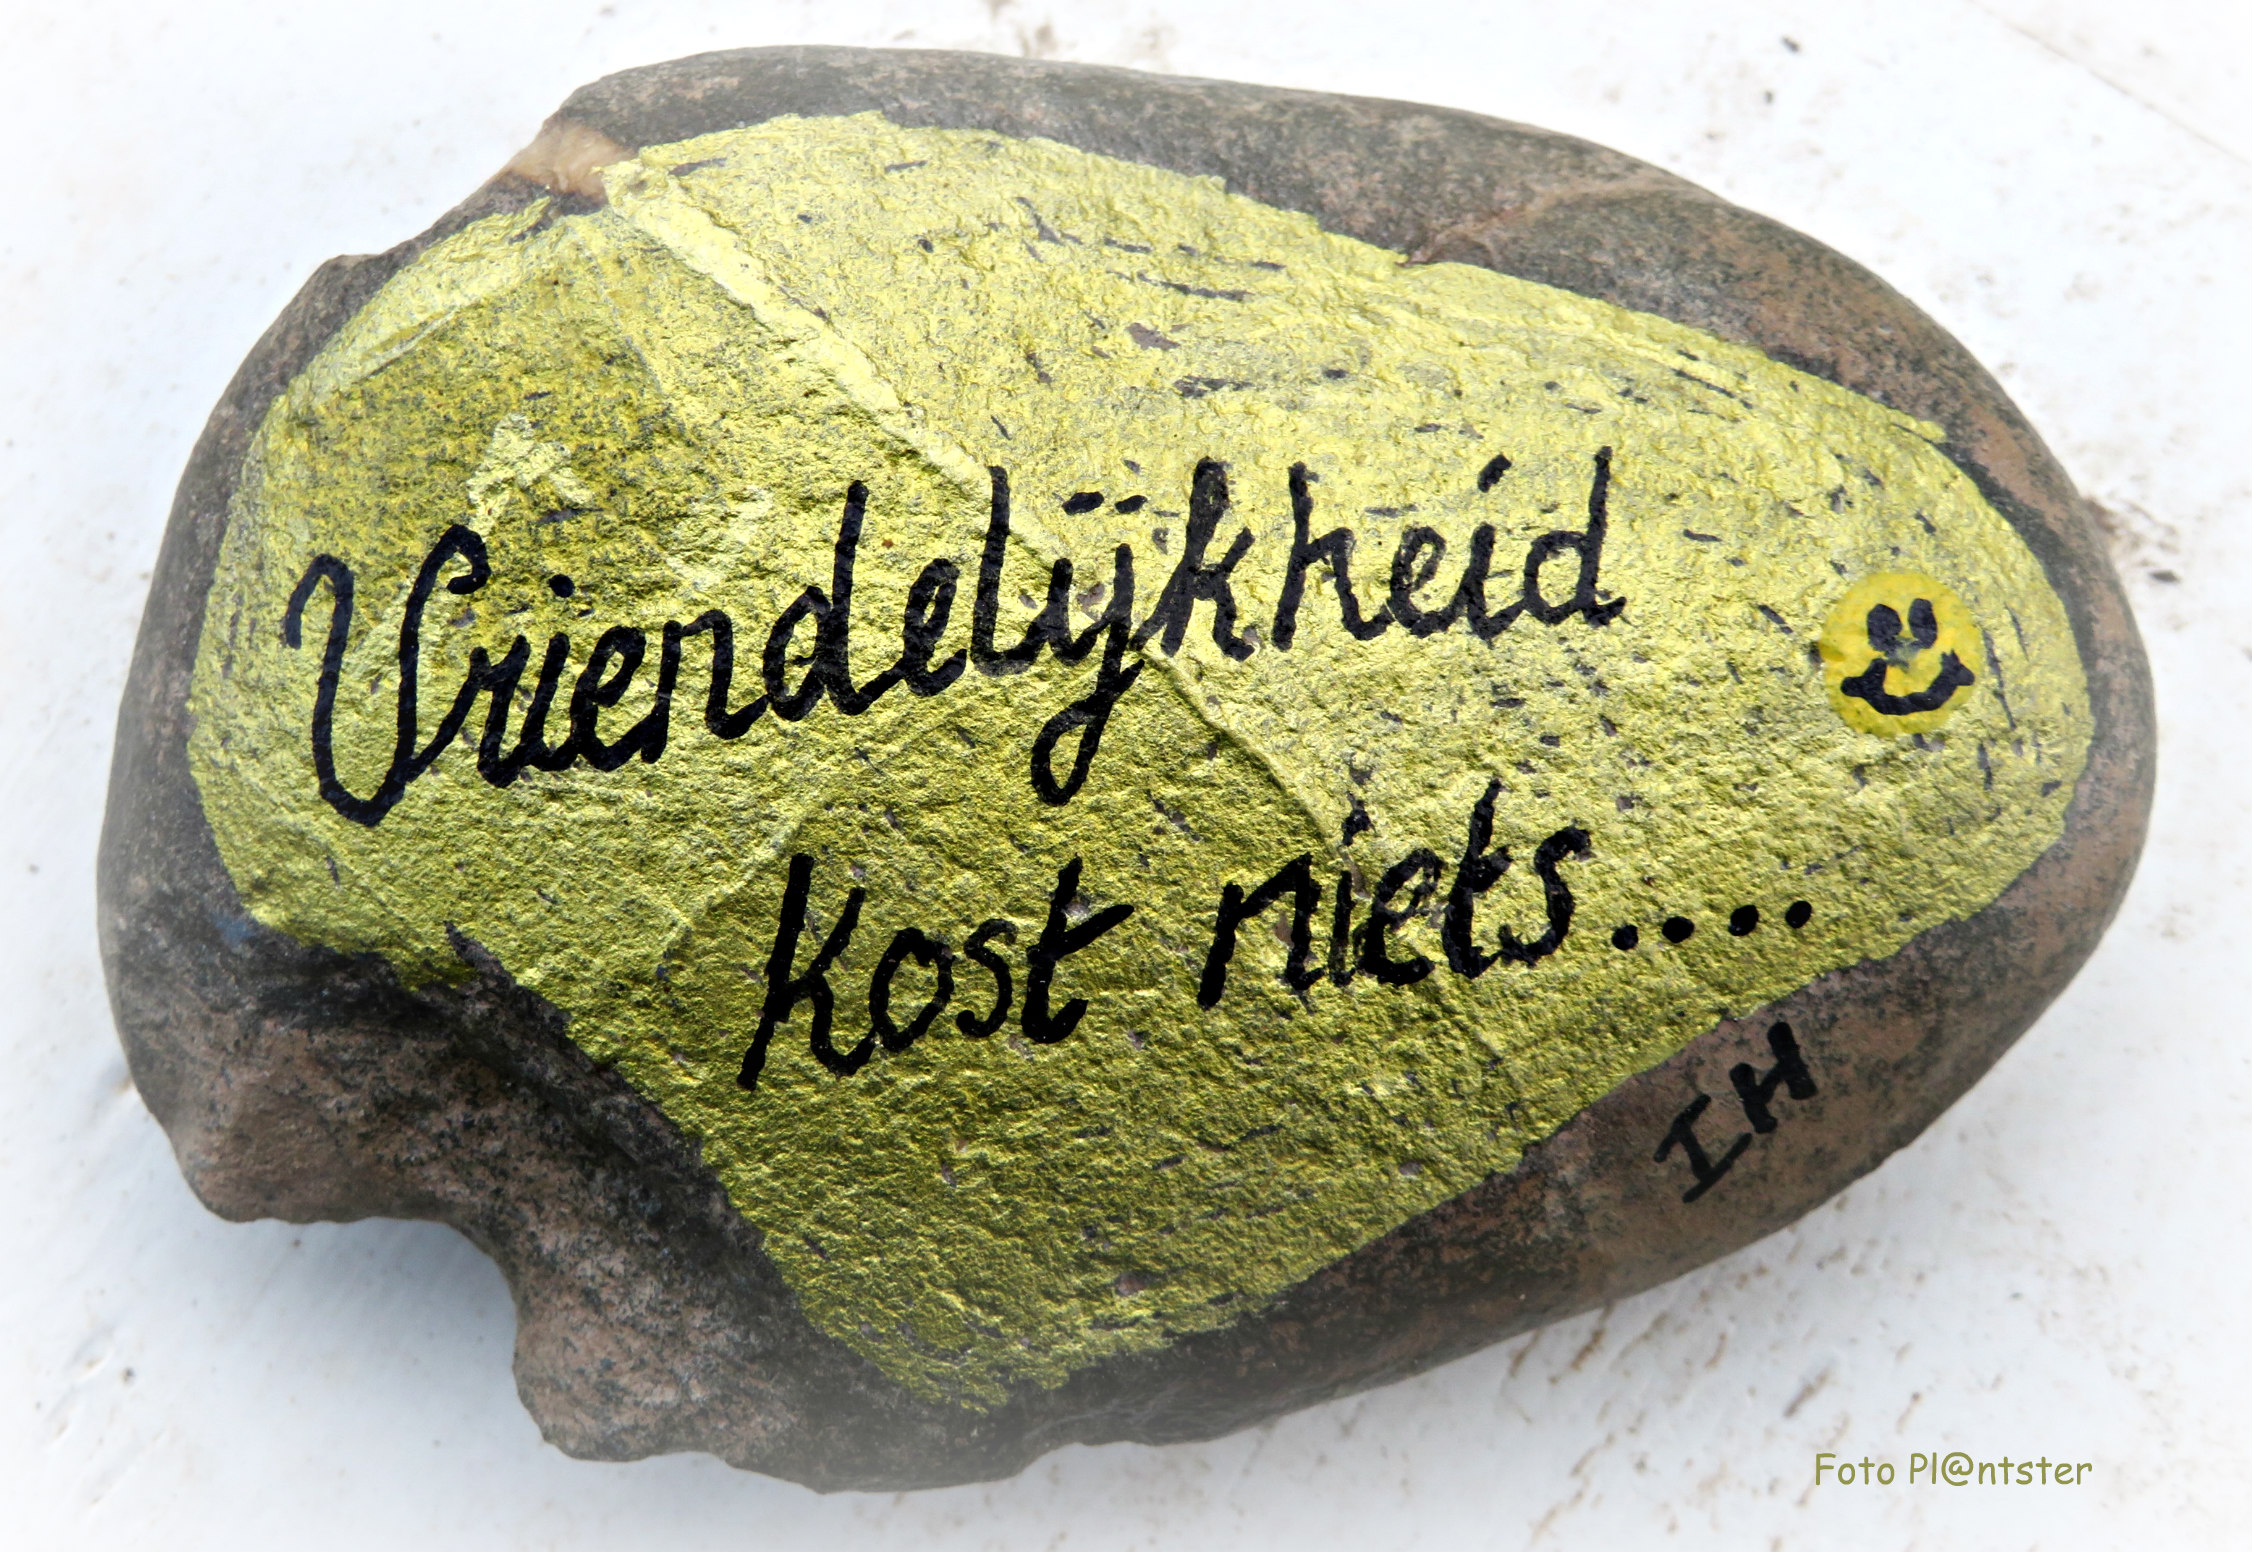 Vriendelijkheid
kost niets....
IH
Foto Pl@ntster